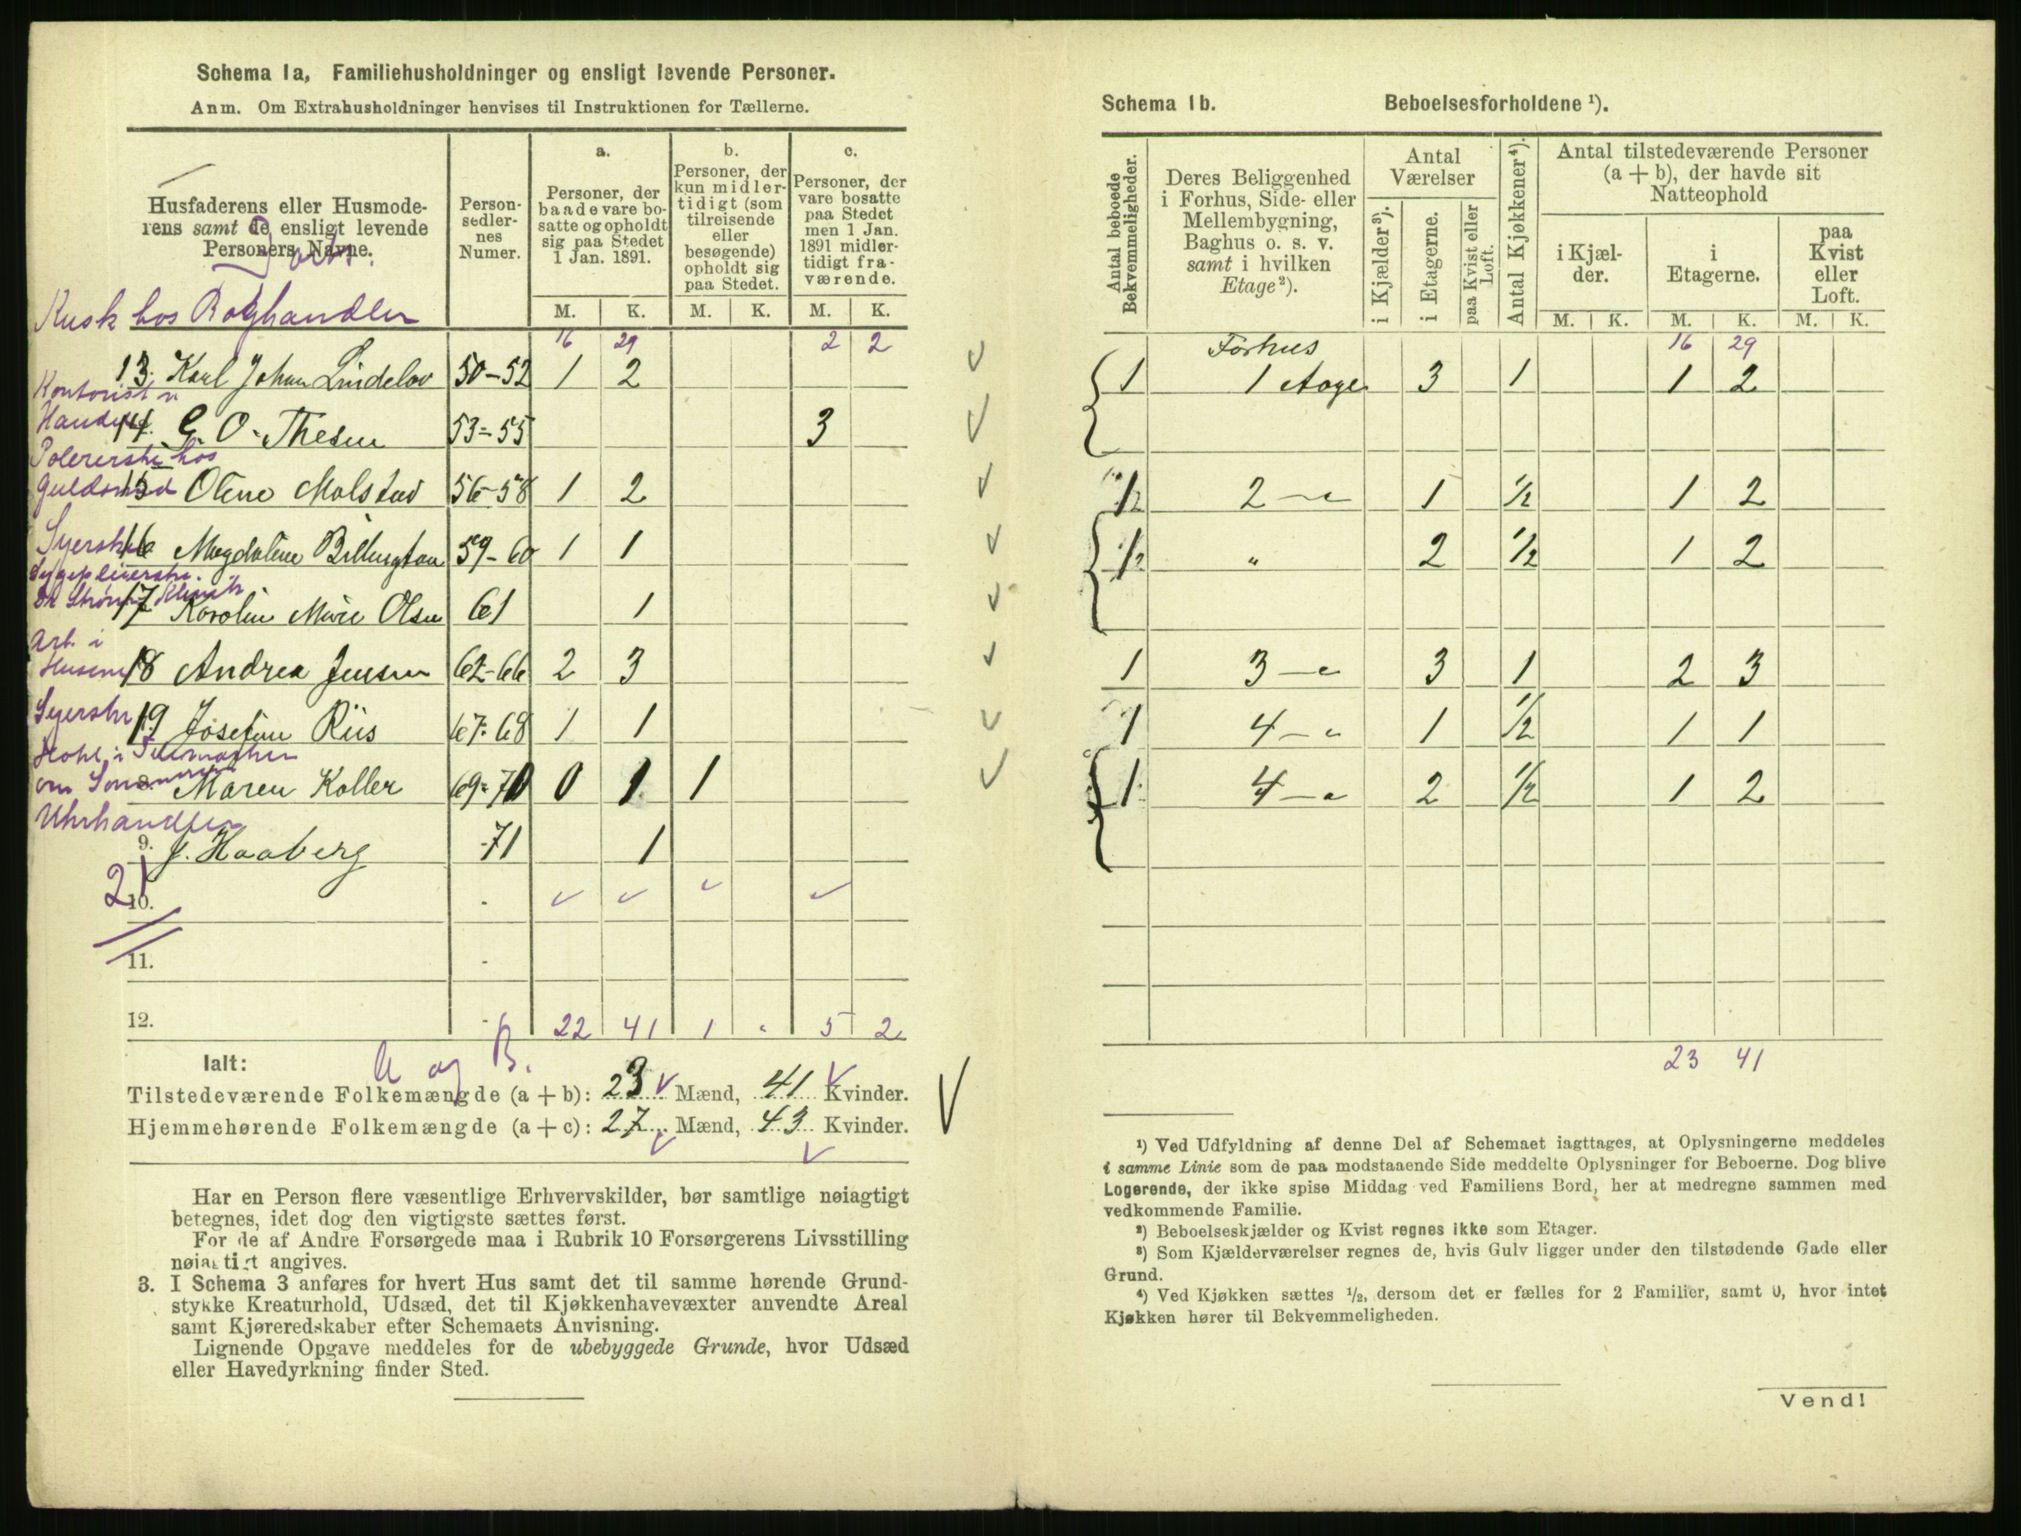 Schema 1a, Familiehusholdninger og ensligt levende Personer.
Anm. Om Extrahusholdninger henvises til Instruktionen for Tællerne.
Husfaderens eller Husmode-
rens samt de ensligt levende
Personers Navne.
Person-
sedler-
nes
Numer.
a.
Personer, der
baade vare bo-
satte og opholdt
sig paa Stedet
1 Jan. 1891.
b.
Personer, der
kun midler-
tidigt (som
tilreisende
eller
besøgende)
opholdt sig
paa Stedet.
c.
Personer, der
vare bosatte
paa Stedet
men 1 Jan.
1891 midler-
tidigt fra-
værende.
M. K. M. K. M. K.
Kusk hos
16 29 2 2
13. Karl Johan Lindelov 50-52 1 2
Kontorist
14. G. O. Thesen 53-55 3
Polererske hos
Guldsmed
15 Oline Molstad 56-58 1 2
Syerske
16 Magdalene Billington 59-60 1 1
Sygepleierske
17 Karolin Marie Olsen 61 1
Arb. i
18 Andrea Jensen 62-66 2 3
Syerske
19 Josefine Riis 67-68 1 1
Maren Koller 69-70 0 1 1
Uhrhandler
9. J. Haaberg 71 1
21
10.
11.
12. 22 41 1 5 2
Ialt:
A og B.
Tilstedeværende Folkemængde (a + b): 23 Mænd, 41 Kvinder.
Hjemmehørende Folkemængde (a + c): 27 Mænd, 43 Kvinder.
Har en Person flere væsentlige Erhvervskilder, bør samtlige nøiagtigt
betegnes, idet dog den vigtigste sættes først.
For de af Andre Forsørgede maa i Rubrik 10 Forsørgerens Livsstilling
nøiagtigt angives.
3. I Schema 3 anføres for hvert Hus samt det til samme hørende Grund-
stykke Kreaturhold, Udsæd, det til Kjøkkenhavevæxter anvendte Areal
samt Kjøreredskaber efter Schemaets Anvisning.
Lignende Opgave meddeles for de ubebyggede Grunde, hvor Udsæd
eller Havedyrkning finder Sted.
Schema 1b. Beboelsesforholdene ¹).
Antal beboede
Bekvemmeligheder.
Deres Beliggenhed
i Forhus, Side- eller
Mellembygning,
Baghus o. s. v.
samt i hvilken
Etage ²).
Antal
Værelser
i Kjælder ³).
i Etagerne.
paa Kvist eller
Loft.
Antal Kjøkkener ⁴).
Antal tilstedeværende Personer
(a + b), der havde sit
Natteophold
i Kjæl-
der.
i
Etagerne.
paa
Kvist
eller
Loft.
M. K. M. K. M. K.
Forhus 16 29
1 1 3 1 1 2
1/2 2 1 1/2 1 2
1/2 " 2 1/2 1 2
1 3 3 1 2 3
1 4 1 1/2 1 1
1 4 2 1/2 1 2
23 41
¹) Ved Udfyldning af denne Del af Schemaet iagttages, at Oplysningerne meddeles
i samme Linie som de paa modstaaende Side meddelte Oplysninger for Beboerne. Dog blive
Logerende, der ikke spise Middag ved Familiens Bord, her at medregne sammen med
vedkommende Familie.
²) Beboelseskjælder og Kvist regnes ikke som Etager.
³) Som Kjælderværelser regnes de, hvis Gulv ligger under den tilstødende Gade eller
Grund.
⁴) Ved Kjøkken sættes 1/2, dersom det er fælles for 2 Familier, samt 0, hvor intet
Kjøkken hører til Bekvemmeligheden.
Vend!